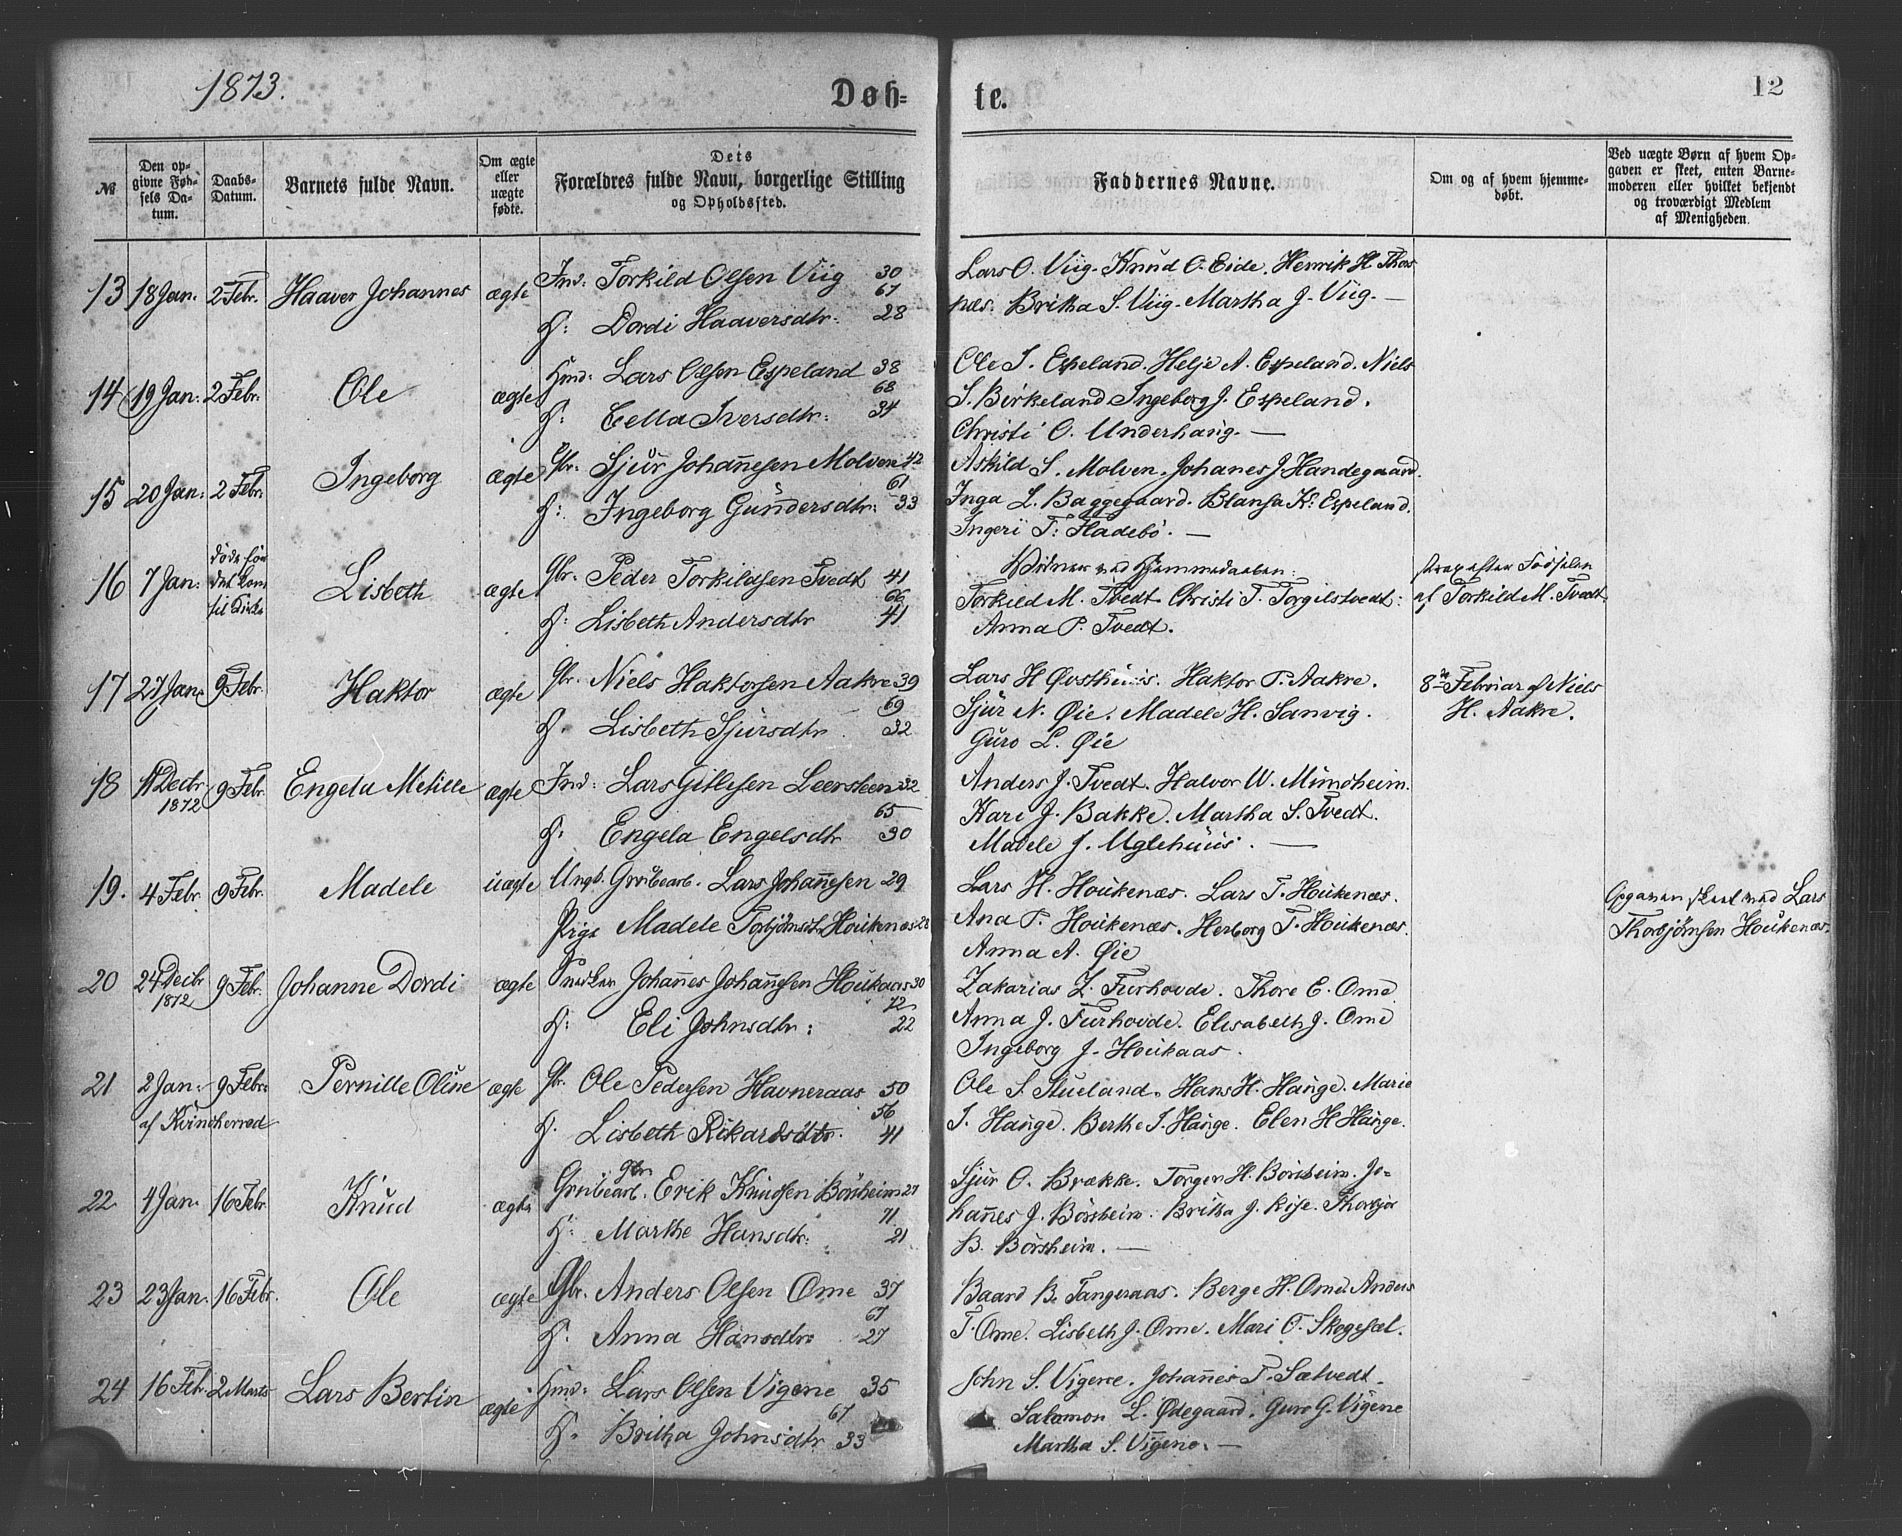 1873.
Døb-
te.
12
№
Den op-
givne Fød-
sels Da-
tum.
Daabs-
Datum.
Barnets fulde Navn.
Om ægte
eller
uægte
fødte.
Dets
Forældres fulde Navn, borgerlige Stilling
og Opholdssted.
Faddernes Navne.
Om og af hvem hjemme-
døbt.
Ved uægte Børn af hvem Op-
gaven er skeet, enten Barne-
moderen eller hvilket bekjendt
og troværdigt Medlem
af Menigheden.
13 18 Jan. 2 Febr. Haaver Johannes ægte Ind: Torkild Olsen Viig 30
67
H: Dordi Haaversdtr. 28
Lars O. Viig. Knud O. Eide. Henrik H. Thors
næs. Britha S. Viig. Martha J. Viig. —
14 19 Jan: 2 Febr. Ole ægte Hmd: Lars Olsen Espeland 38
68
H: Iversdtr: 34
Ole I. Espeland. Helje A. Espeland. Niels
S. Birkeland Ingeborg J. Espeland.
Christi O. Underhaug. —
15 20 Jan: 2 Febr. Ingeborg ægte Gbr. Sjur Johannesen Molven 42
61
H: Ingeborg Gundersdtr: 33
Askild S. Molven. Johanes J Handegaard.
Inga L. Baggegaard. Blansa K: Espeland.
Ingeri T: Fladebø. —
16 7 Jan: Lisbeth ægte Gbr. Peder Torkildsen Tvedt 41
66
H: Lisbeth Andersdtr 41
Vidner ved Hjemmedaaben:
Torkild M. Tvedt Christi T. Torgilstvedt:
Anna P. Tvedt.
strax efter Fødselen
af Torkild M. Tvedt.
17 27 Jan: 9 Febr. Haktor ægte Gbr. Niels Haktorsen Aakre 39
69
H. Lisbeth Sjursdtr 32
Lars H Østhuus. Haktor T. Aakre.
Sjur N. Øie. Madele H. Sanvig.
Guro L. Øie
8de Februar af Niels
H. Aakre.
18 11 Decbr 9 Febr. Engela Metille ægte Ind: Lars Gitlesen Leersteen 32
1872
65
H: Engela Engelsdtr 30
Anders J. Tvedt. Halvor W. Mundheim.
Kari J. Bakke. Martha S. Tvedt.
Madele J. Uglehuus. —
19. 4 Febr. 9 Febr. Madele uægte Ungk. Grubearb. Lars Johannesen 29
Pige Madele Torbjørnsdtr Houkenæs 28
Lars H. Houkenæs. Lars T. Houkenæs.
Ana T. Houkenæs. Herborg T. Houkenæs.
Anna A. Øie
Opgaven skeet ved Lars
Thorbjørnsen Houkenæs.
20 24 Decbr 9 Febr. Johanne Dordi ægte Snedker Johannes Johannesen Houkaas 30
1872
72
H: Eli Johnsdtr: 22
Zakarias Z. Furhovde. Thore E. Ome
Anna J. Furhovde. Elisabeth J. Ome
Ingeborg J. Houkaas.
21 2 Jan: 9 Febr. Pernille Oline ægte Gbr. Ole Pedersen Havneraas 50
af Kvindherred
56
H. Lisbeth Rikardsdtr. 41
Ole S. Stueland. Hans H. Hauge. Marie
I. Hauge. Berthe I. Hauge. Elen H Hauge.
22 4 Jan. 16 Febr. Knud ægte Grubearb. Gbr. Erik Knudsen Børsheim 27
71
H: Marthe Hansdtr: 21
Sjur O. Brække. Torger H. Børsheim. Jo-
hannes J. Børsheim. Britha J. Rise. Thorbjør
B. Børsheim. —
23 23 Jan. 16 Febr. Ole ægte Gbr. Anders Olsen Ome 37
67
H. Anna Hansdtr 27
Baard B. Tangeraas. Berge H. Ome. Anders
T. Ome. Lisbeth J. Ome. Mari O. Skogesæl.
24 16 Feb. 2 Marts Lars Bertin ægte Hmd: Lars Olsen Vigene 35
67
H. Britha Johnsdtr 33
John S. Vigene. Johannes T. Sætvedt.
Salomon L. Ødegaard. Guro G. Vigene
Martha S. Vigene. —